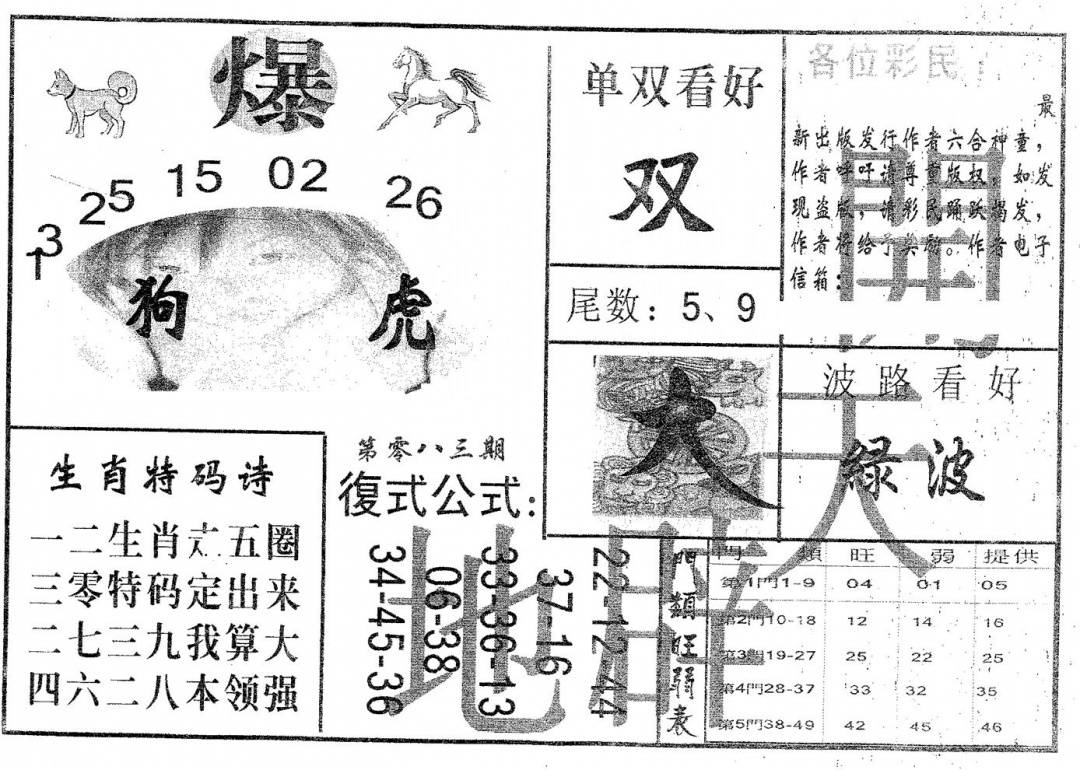 爆
25 15 02 26
13
狗 虎
单双看好
双
尾数：5、9
各位彩民：
最
新出版发行作者六合神童，
作者呼吁请尊重版权，如发
现盗版，请彩民踊跃揭发，
作者将给予奖励。作者电子
信箱：
大
波路看好
緑波
生肖特码诗
一二生肖 五圈
三零特码定出来
二七三九我算大
四六二八本领强
第零八三期
復式公式：
34-45-36
06-38
33-36-13
37-16
22-12-44
開
天
地
門類旺弱表
門 類 旺 弱 提供
第1門1-9 04 01 05
第2門10-18 12 14 16
第3門19-27 25 22 25
第4門28-37 33 32 35
第5門38-49 42 45 46